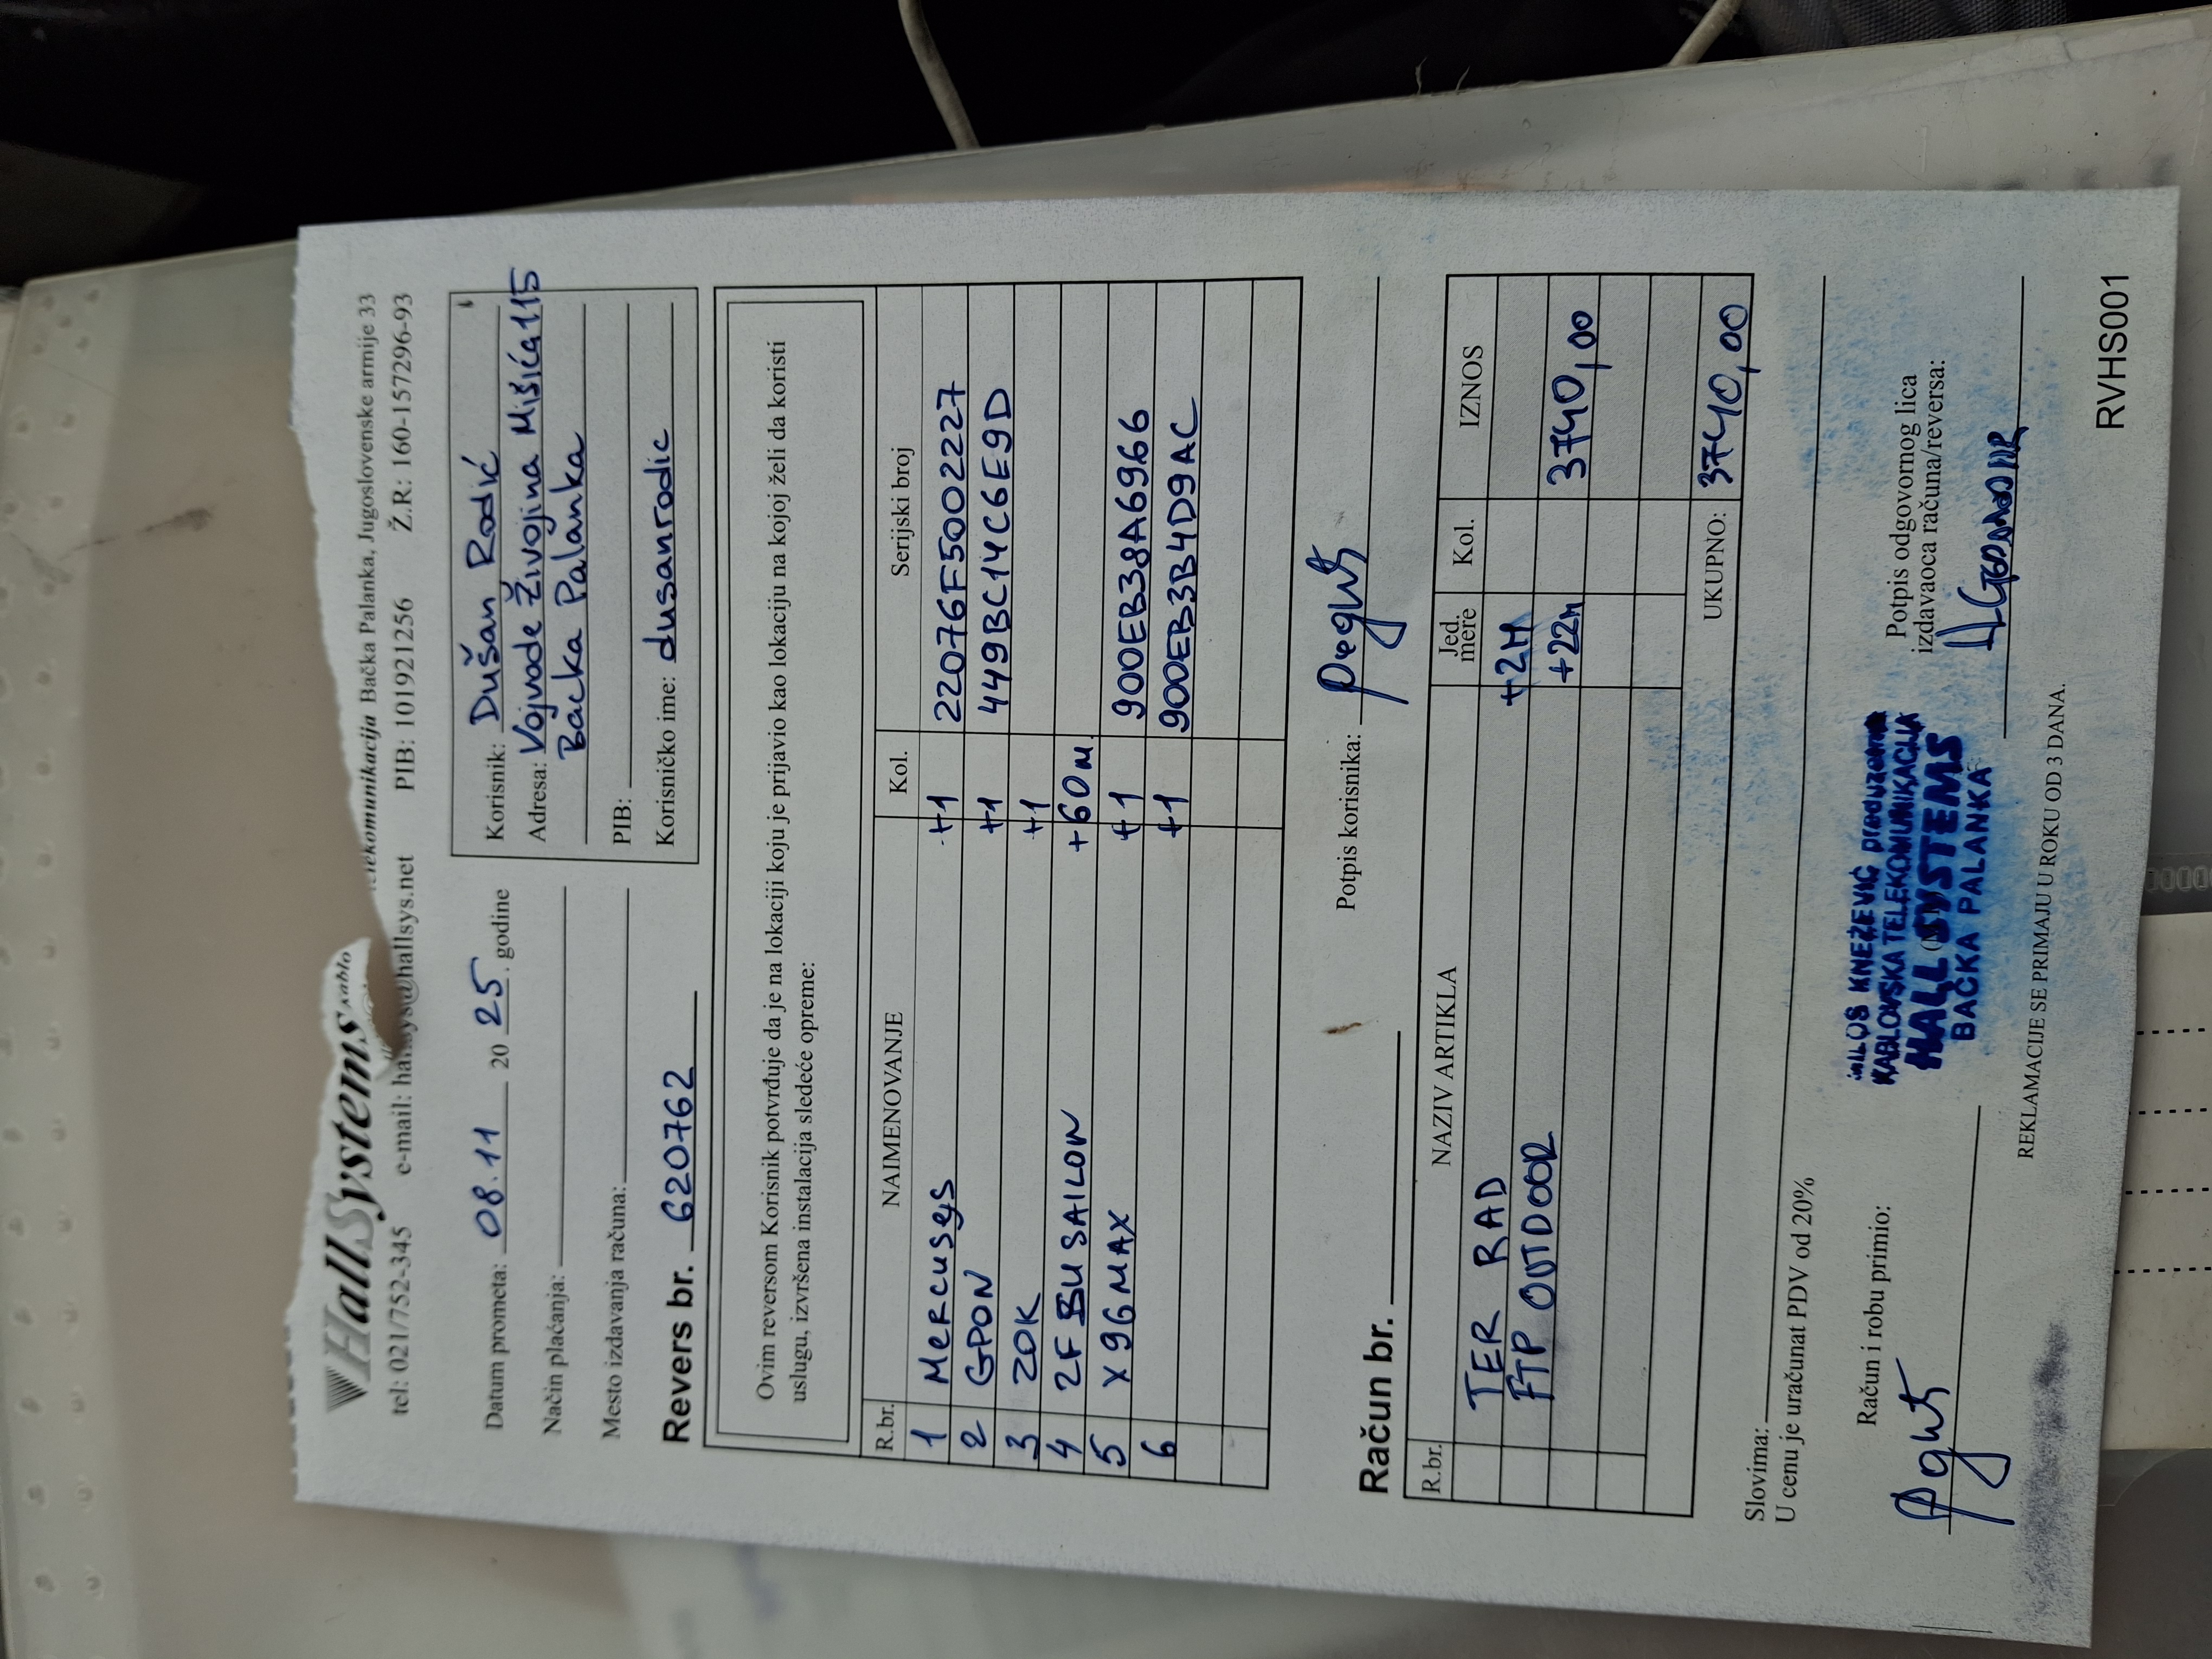 HallSystems
kablo
telekomunikacija Bačka Palanka, Jugoslovenske armije 33
tel: 021/752-345 e-mail: hallsys@hallsys.net PIB: 101921256 Ž.R: 160-157296-93
Datum prometa: 08.11 20 25. godine
Način plaćanja:
Mesto izdavanja računa:
Korisnik: Dušan Rodić
Adresa: Vojvode Živojina Mišića 115
Bačka Palanka
PIB:
Korisničko ime: dusanrodic
Revers br. 620762
Ovim reversom Korisnik potvrđuje da je na lokaciji koju je prijavio kao lokaciju na kojoj želi da koristi
uslugu, izvršena instalacija sledeće opreme:
R.br. NAIMENOVANJE Kol. Serijski broj
1 Mercusys +1 22076F5002227
2 GPON +1 449BC14C6E9D
3 ZOK +1
4 2F BU SAILON +60m
5 X96MAX +1 900EB38A6966
6 +1 900EB3B4D9AC
Potpis korisnika:
Račun br.
R.br. NAZIV ARTIKLA Jed. mere Kol. IZNOS
TER RAD +2H
FTP OUTDOOR +22m 3740,00
UKUPNO: 3740,00
Slovima:
U cenu je uračunat PDV od 20%
Račun i robu primio:
MILOŠ KNEŽEVIĆ preduzetnik
KABLOVSKA TELEKOMUNIKACIJA
HALL SYSTEMS
BAČKA PALANKA
Potpis odgovornog lica
izdavaoca računa/reversa:
REKLAMACIJE SE PRIMAJU U ROKU OD 3 DANA.
RVHS001